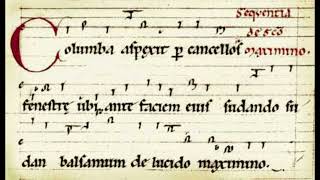 Sequentia
de sc̅o
maximino.
Columba aspexit ꝑ cancellos
fenestrę ubi ante faciem eius sudando su
dan balsamum de lucido maximino.